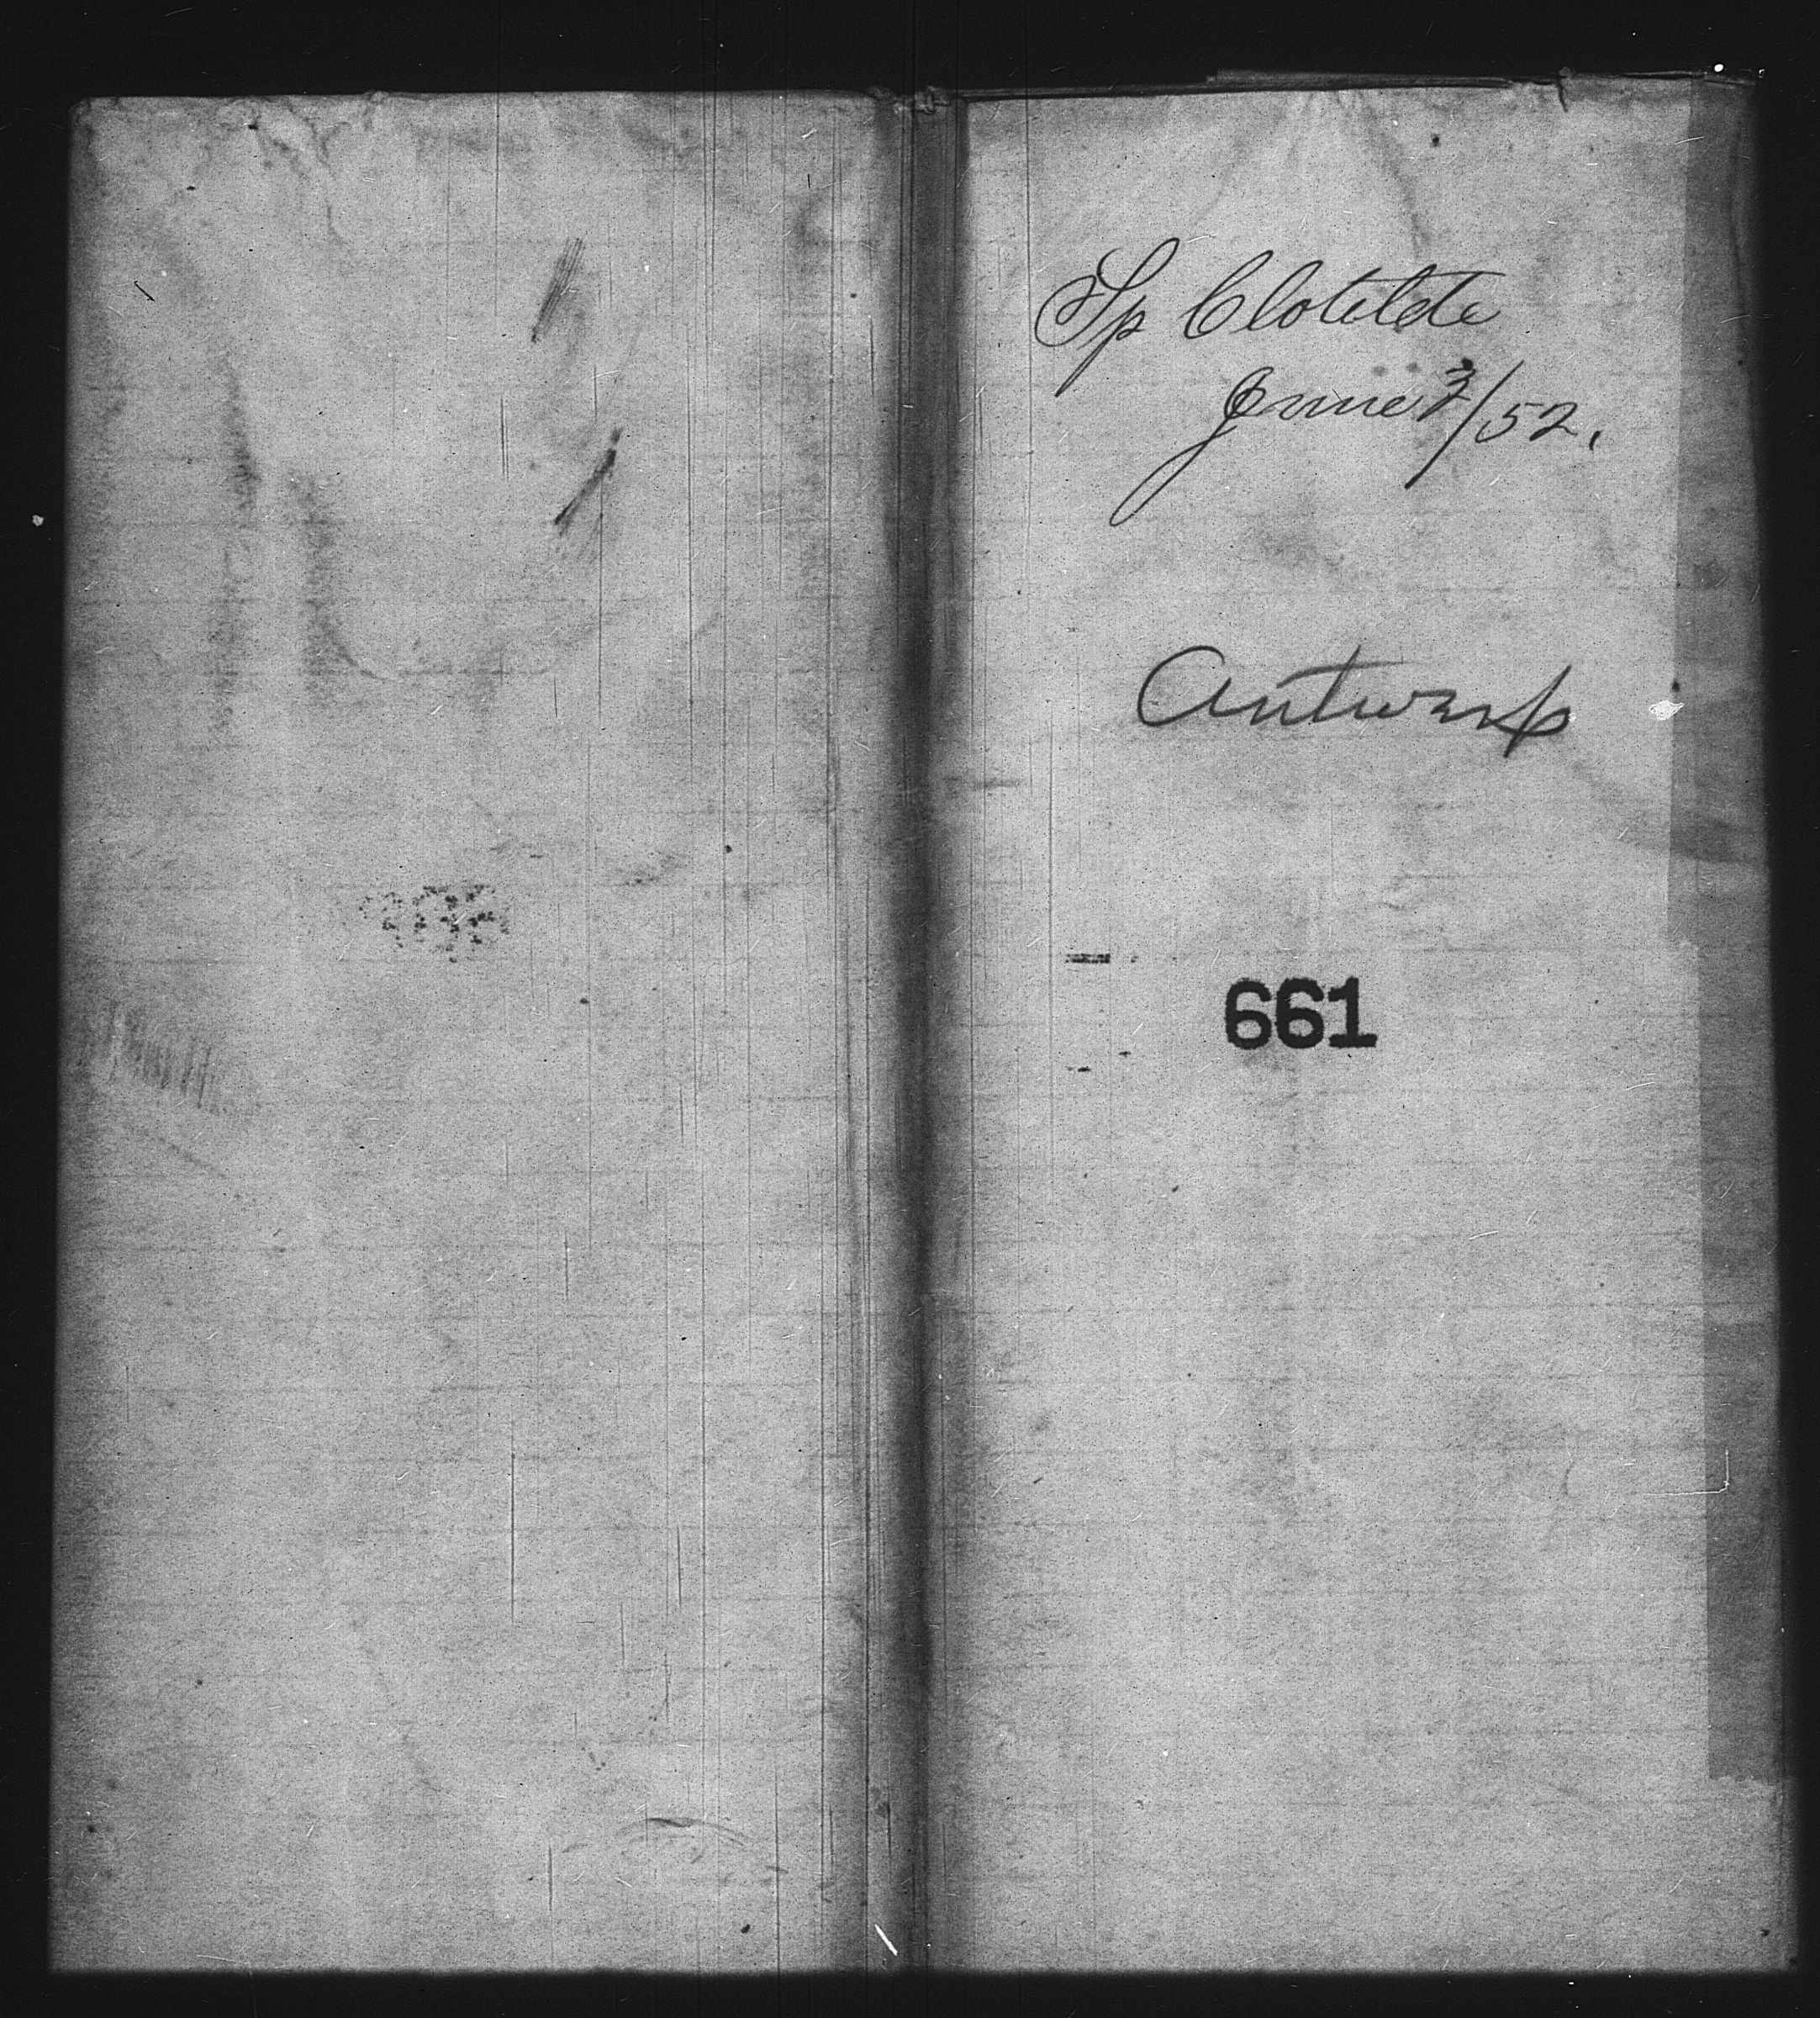 Sp Clotilde
June 3/52.
Antwerp
661